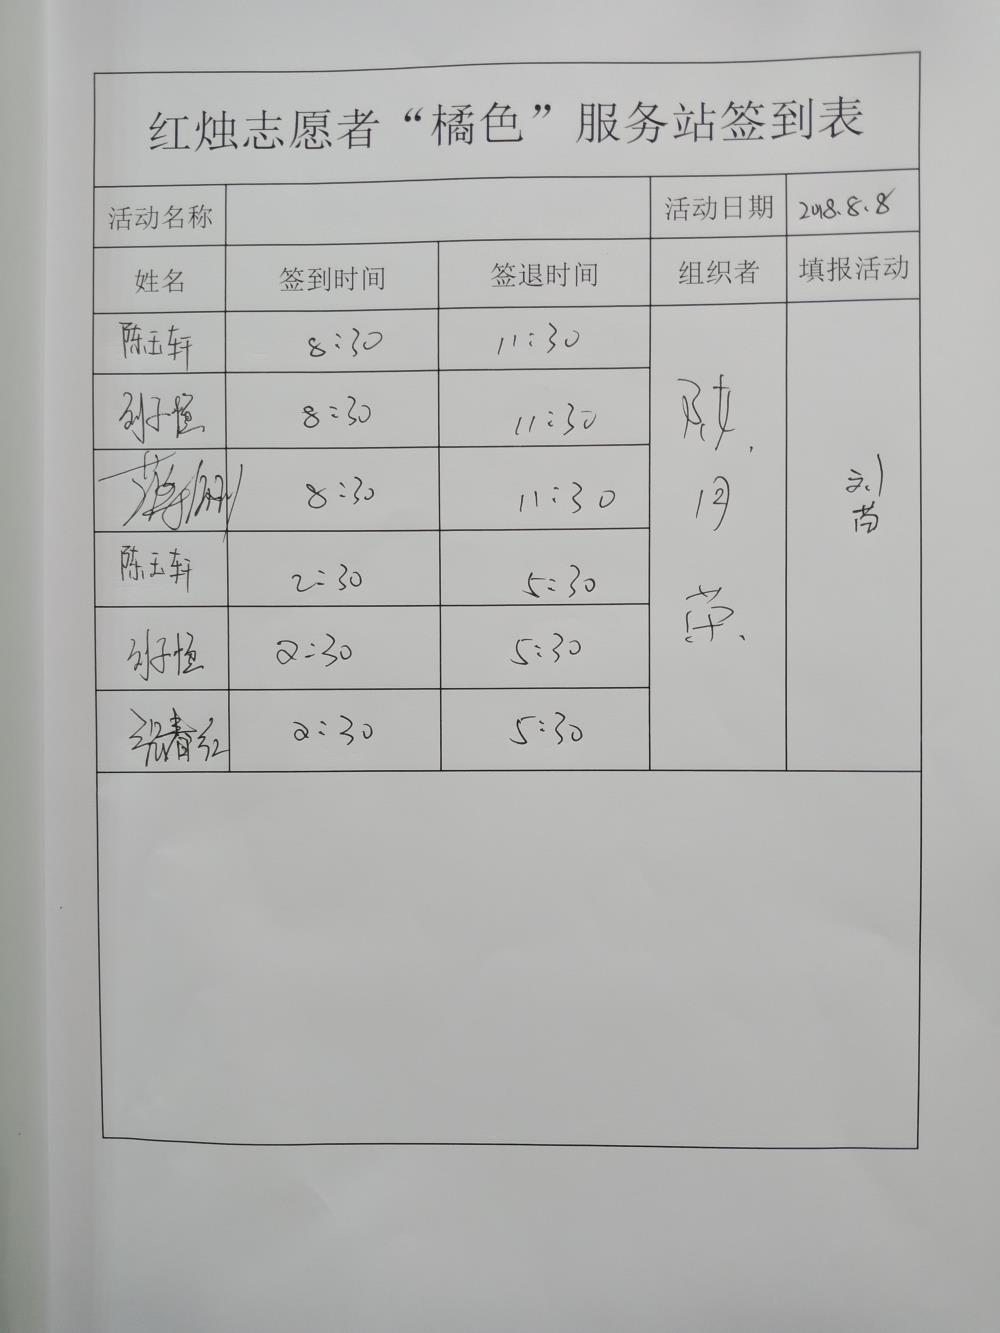 红烛志愿者“橘色”服务站签到表
活动名称 活动日期 2018.8.8
姓名 签到时间 签退时间 组织者 填报活动
陈玉轩 8:30 11:30
刘子恒 8:30 11:30
8:30 11:30
陈玉轩 2:30 5:30
刘子恒 2:30 5:30
张春红 2:30 5:30
刘苗